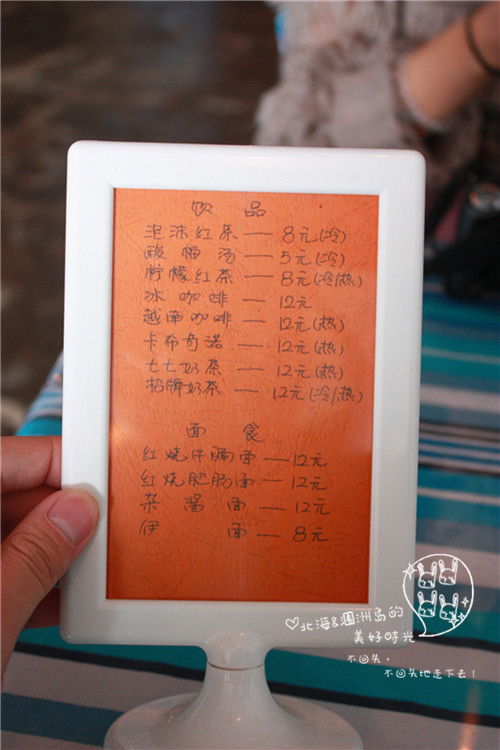 饮 品
泡沫红茶 — 8元(冷)
酸梅汤 — 5元(冷)
柠檬红茶 — 8元(冷/热)
冰咖啡 — 12元
越南咖啡 — 12元(热)
卡布奇诺 — 12元(热)
七七奶茶 — 12元(热)
招牌奶茶 — 12元(冷/热)
面 食
红烧牛腩面 — 12元
红烧肥肠面 — 12元
杂酱面 — 12元
伊 面 — 8元
♡北海&涠洲岛的
美好時光
不回头,
不回头地走下去!